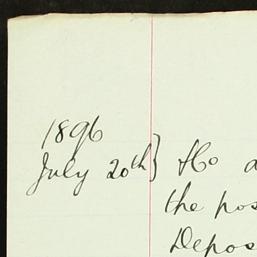 1896
July 20th} Ho a
the pos
Depos